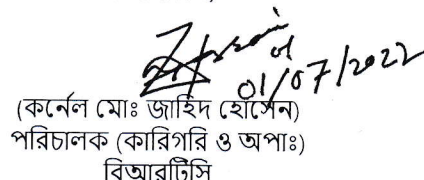 01/07/2022
(কর্নেল মোঃ জাহিদ হোসেন)
পরিচালক (কারিগরি ও অপাঃ)
বিআরটিসি